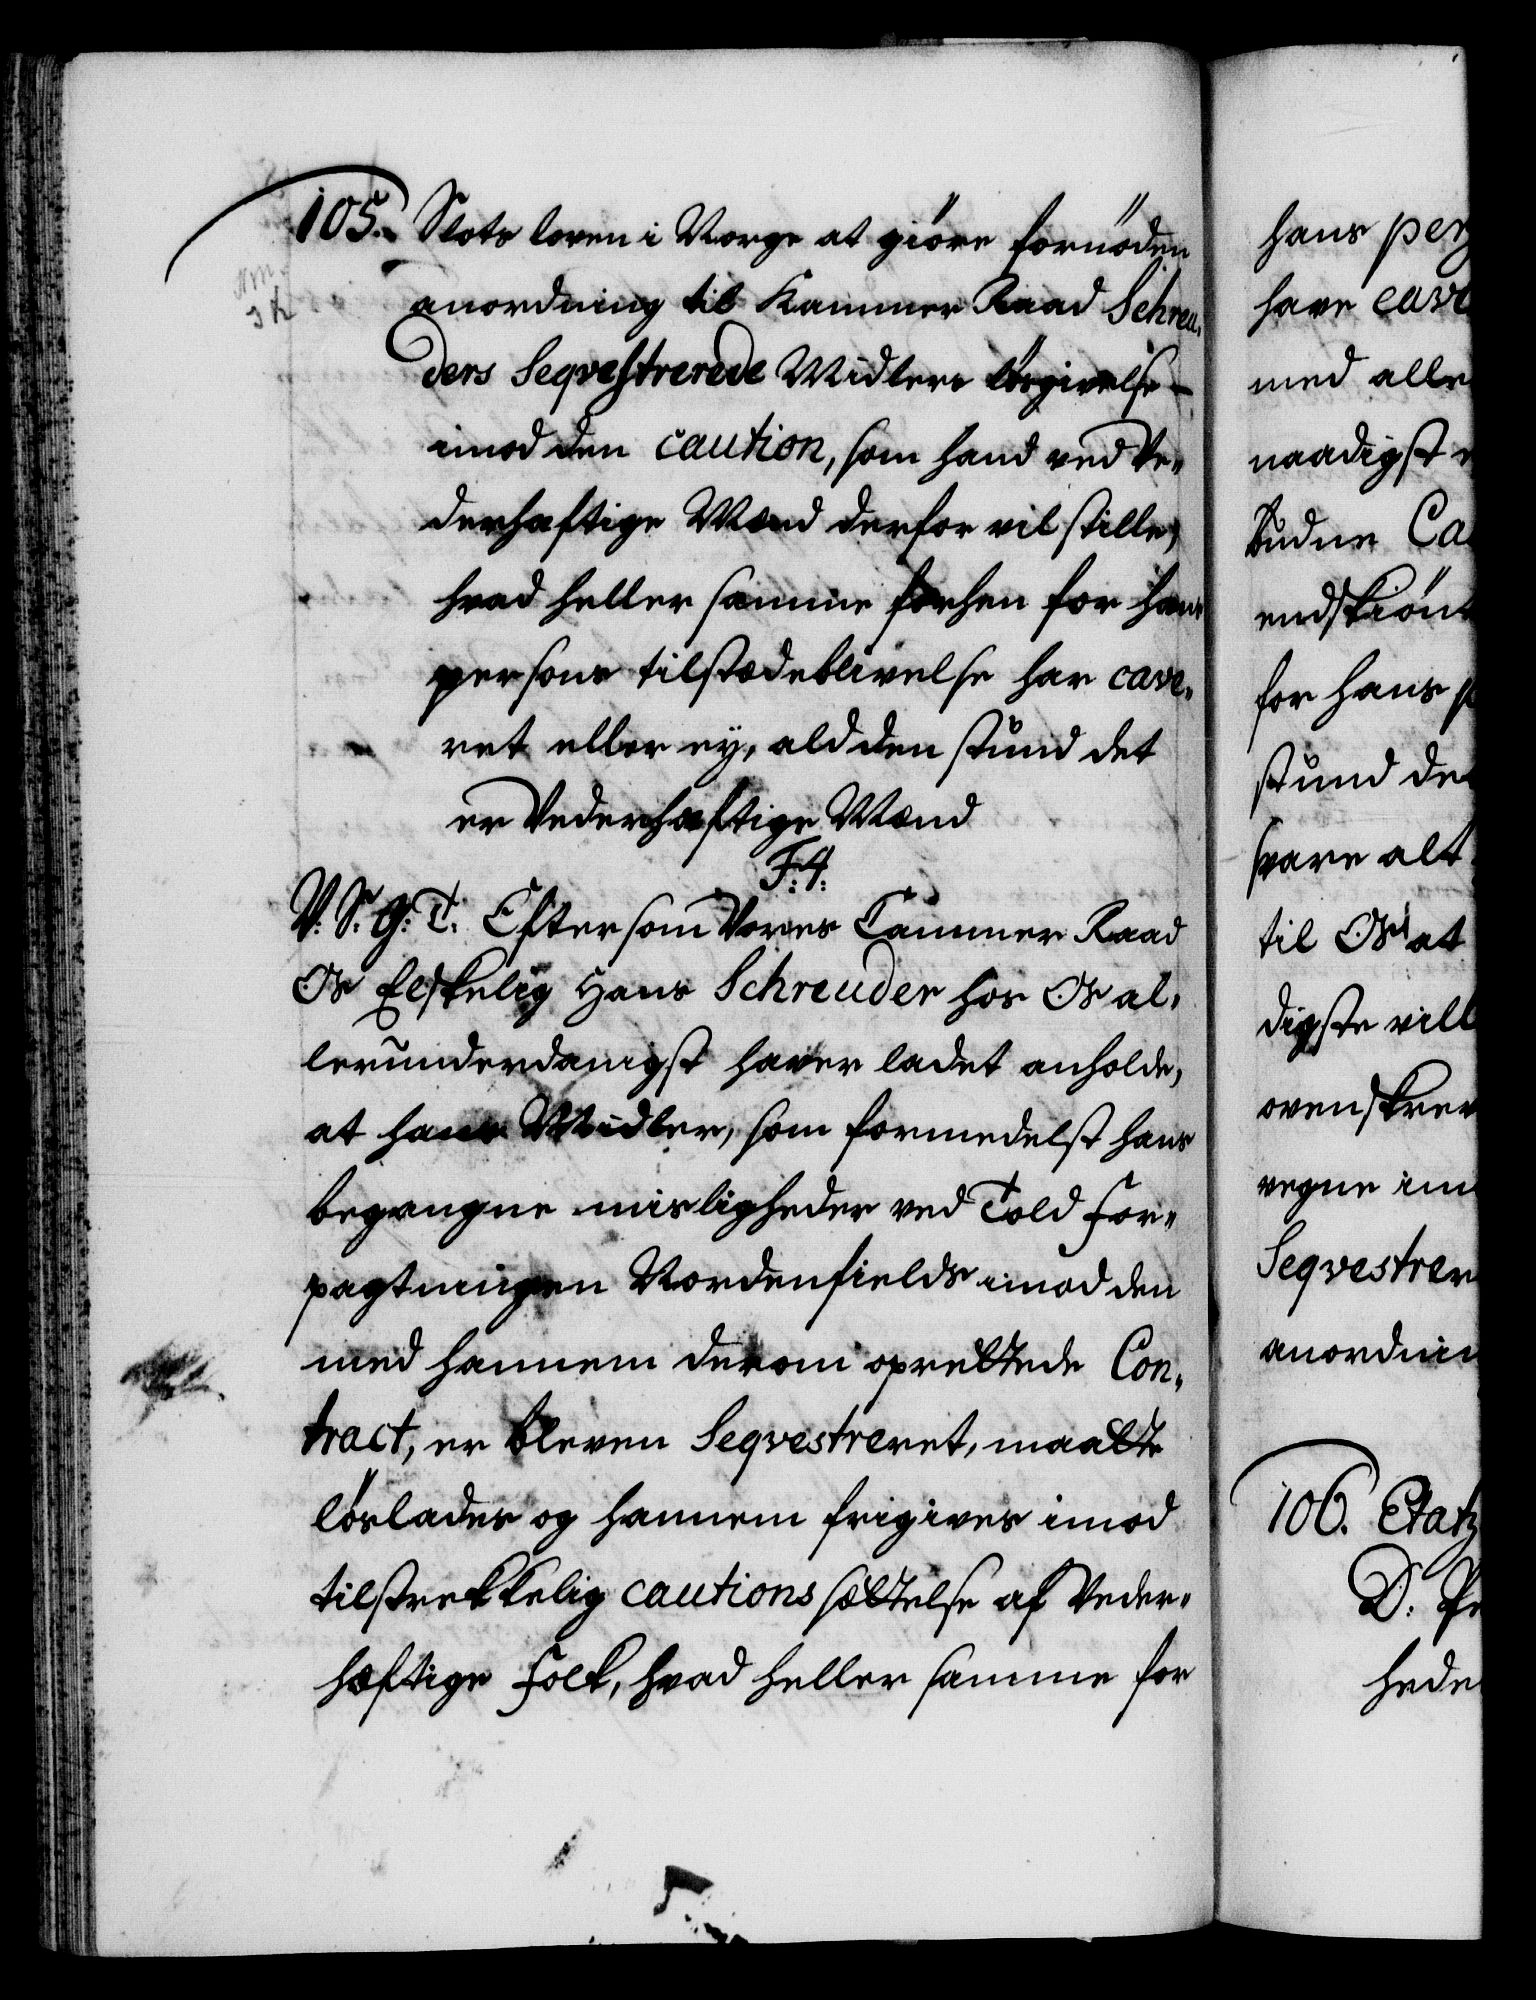 105. Slots loven i Norge at giöre fornöden
anordning til Kammer Raad Schreu-
ders Seqvestrerede Midlers lösgivelse
imod den caution, som hand ved Ve-
derhæftige Mænd derfor vil stille,
hvad heller samme forhen for hans
persons tilstædeblivelse har cave-
ret eller ey, ald den stund det
er Vederhæftige Mænd
F: 4:
V: S: G: T: Eftersom Vores Cammer Raad
Os Elskelig Hans Schreuder hos Os al-
lerunderdanigst haver ladet anholde,
at hans Midler, som formedelst hans
begangne misligheder ved Told For-
pagtningen Nordenfields imod den
med hannem derom oprettede Con-
tract, er bleven Seqvestreret, maatte
löslades og hannem frigives imod
tilstrekkelig cautions sættelse af Veder-
hæftige Folk, hvad heller samme for
hans per
have cave
med aller
naadigst
budne Ca
endskiön
for hans
stund de
svare alt
til Os at
digste vill
ovenskrev
vegne im
Seqvestrer
anordnin
106. Etatz
D. Pr
hede